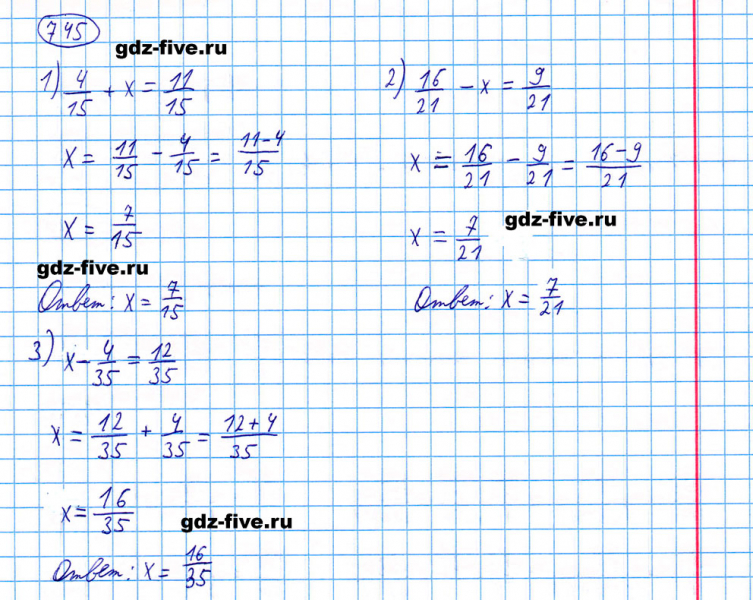 745
gdz-five.ru
1) 4/15 + x = 11/15
x = 11/15 - 4/15 = (11-4)/15
x = 7/15
gdz-five.ru
Ответ: x = 7/15
2) 16/21 - x = 9/21
x = 16/21 - 9/21 = (16-9)/21
x = 7/21
gdz-five.ru
Ответ: x = 7/21
3) x - 4/35 = 12/35
x = 12/35 + 4/35 = (12+4)/35
x = 16/35
gdz-five.ru
Ответ: x = 16/35